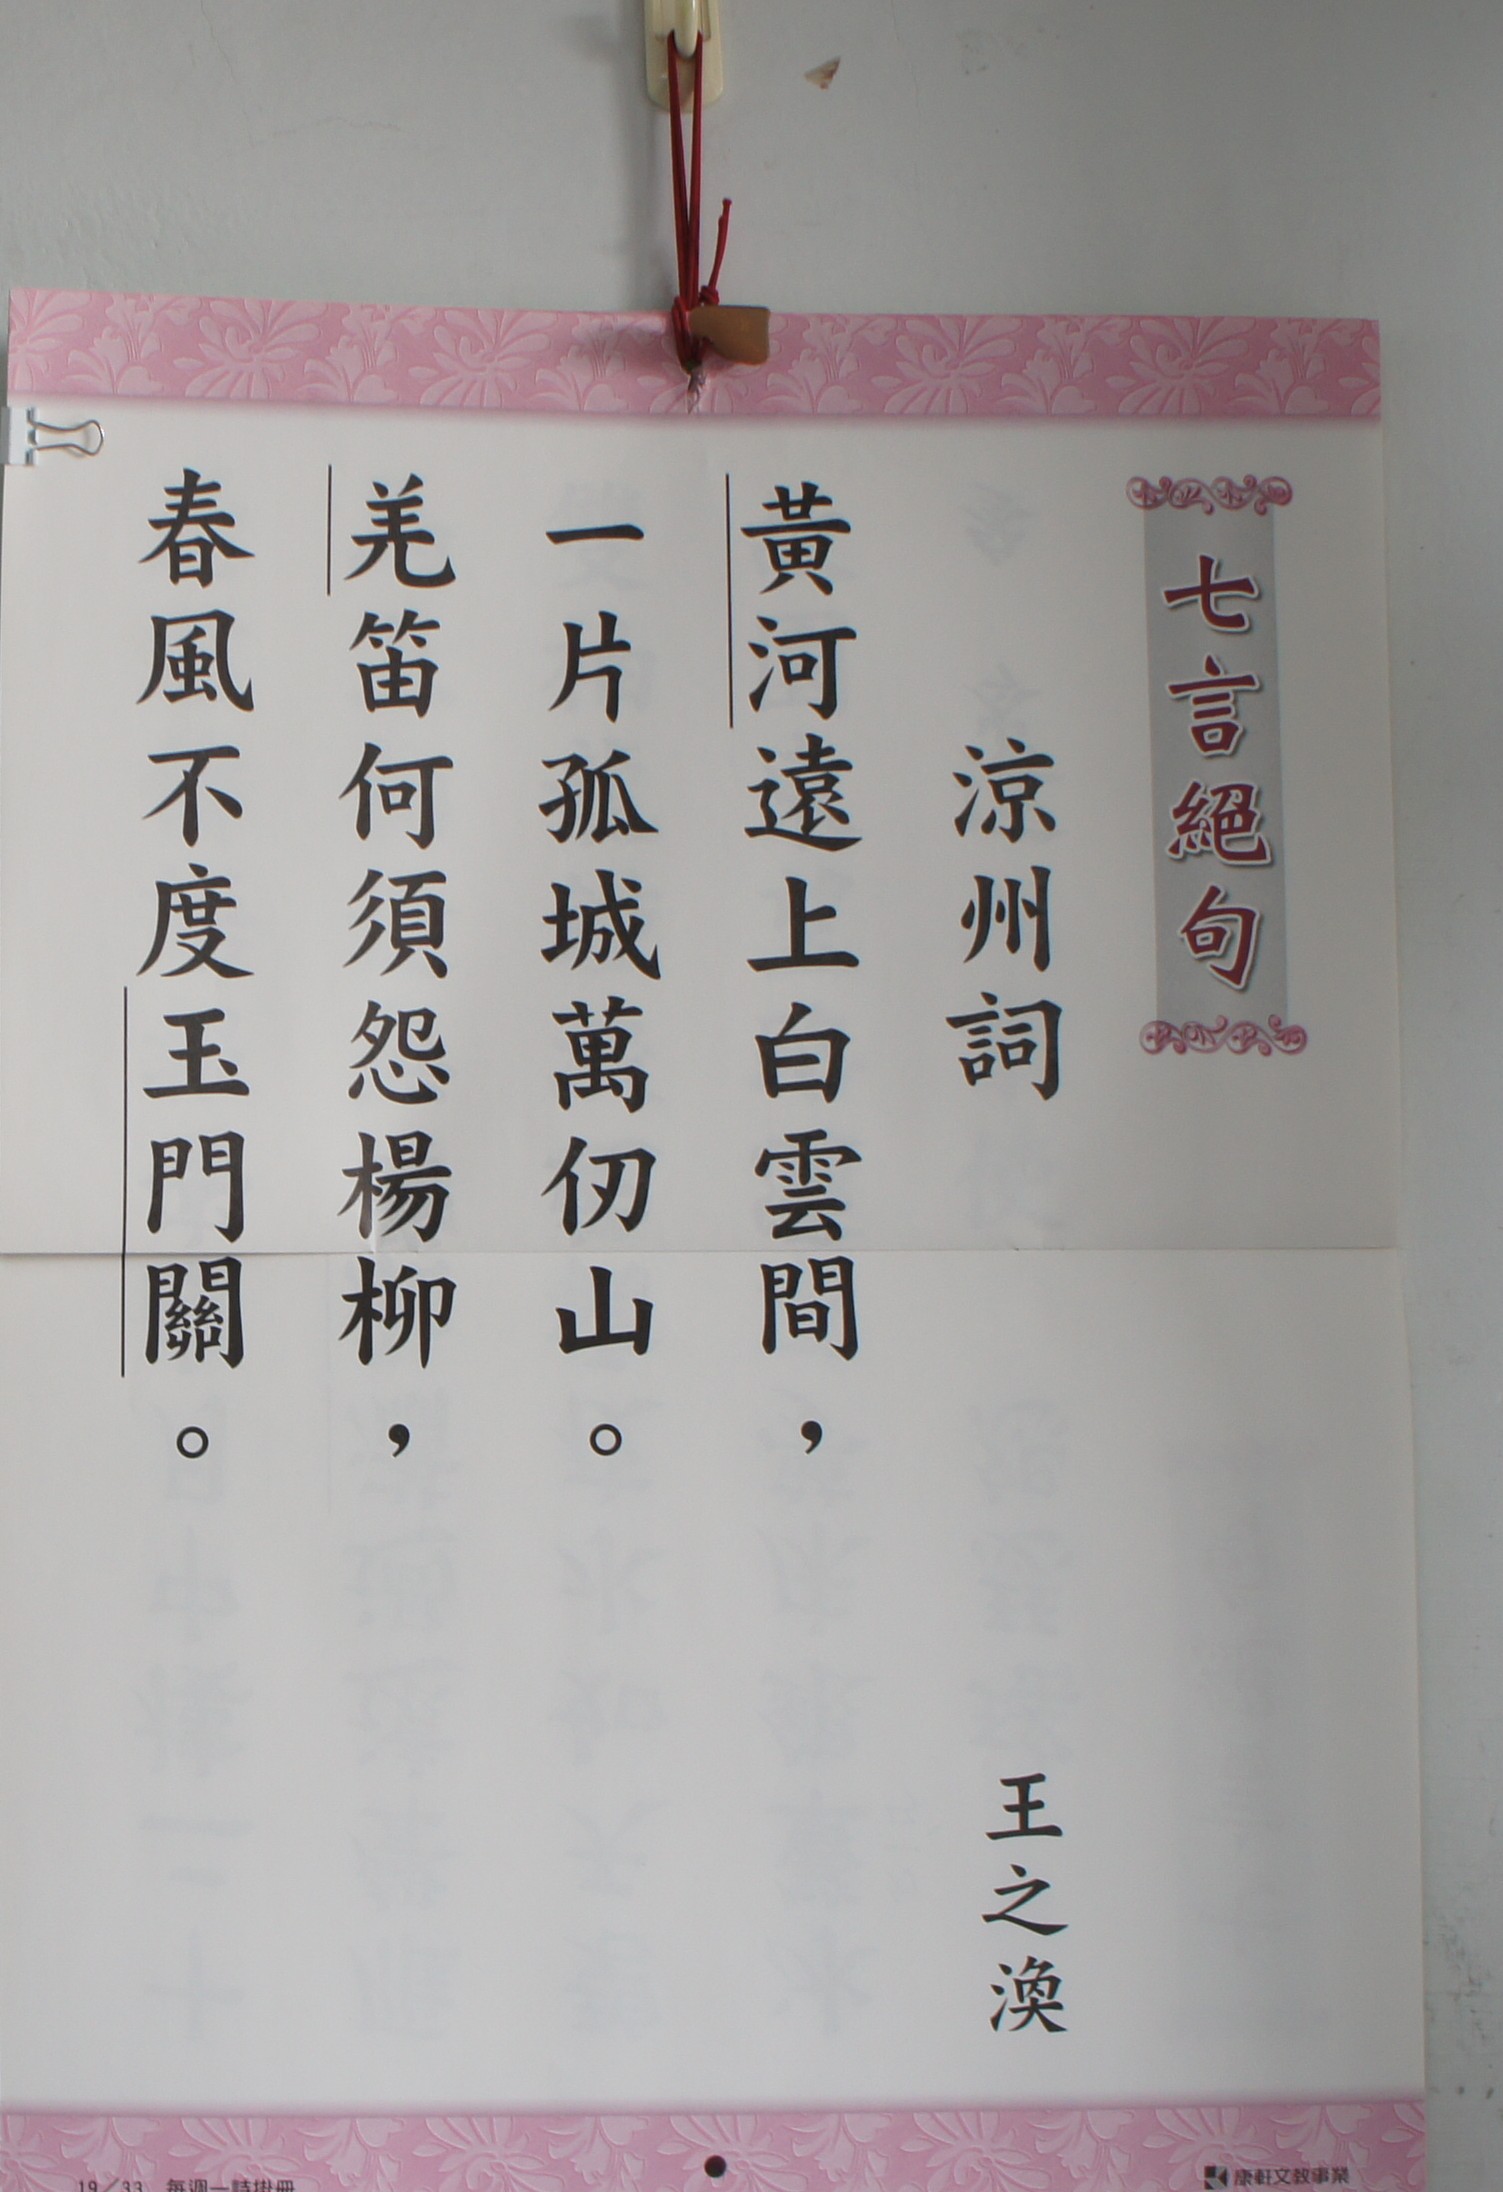 七言絕句
涼州詞
王之渙
黃河遠上白雲間，
一片孤城萬仞山。
羌笛何須怨楊柳，
春風不度玉門關。
19/33 每週一詩掛冊
康軒文教事業